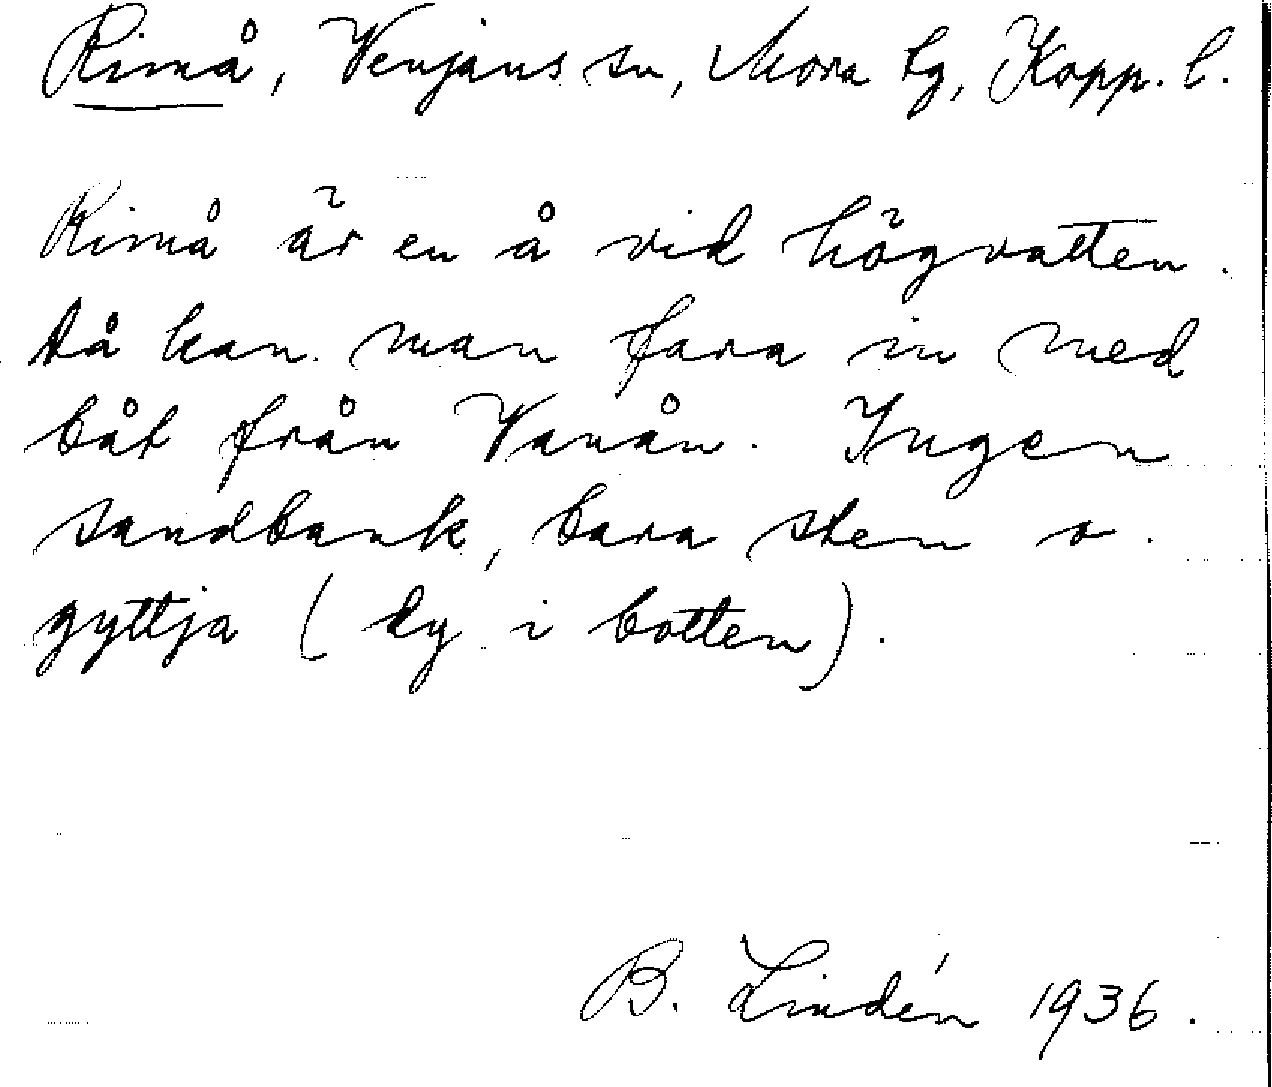 Rimå, Venjans sn, Mora tg, Kopp. l.
Rimå är en å vid högvatten.
då kan man fara in med
båt från Vanån. Ingen
sandbank, bara sten o.
gyttja (dy i botten).
B. Lindén 1936.